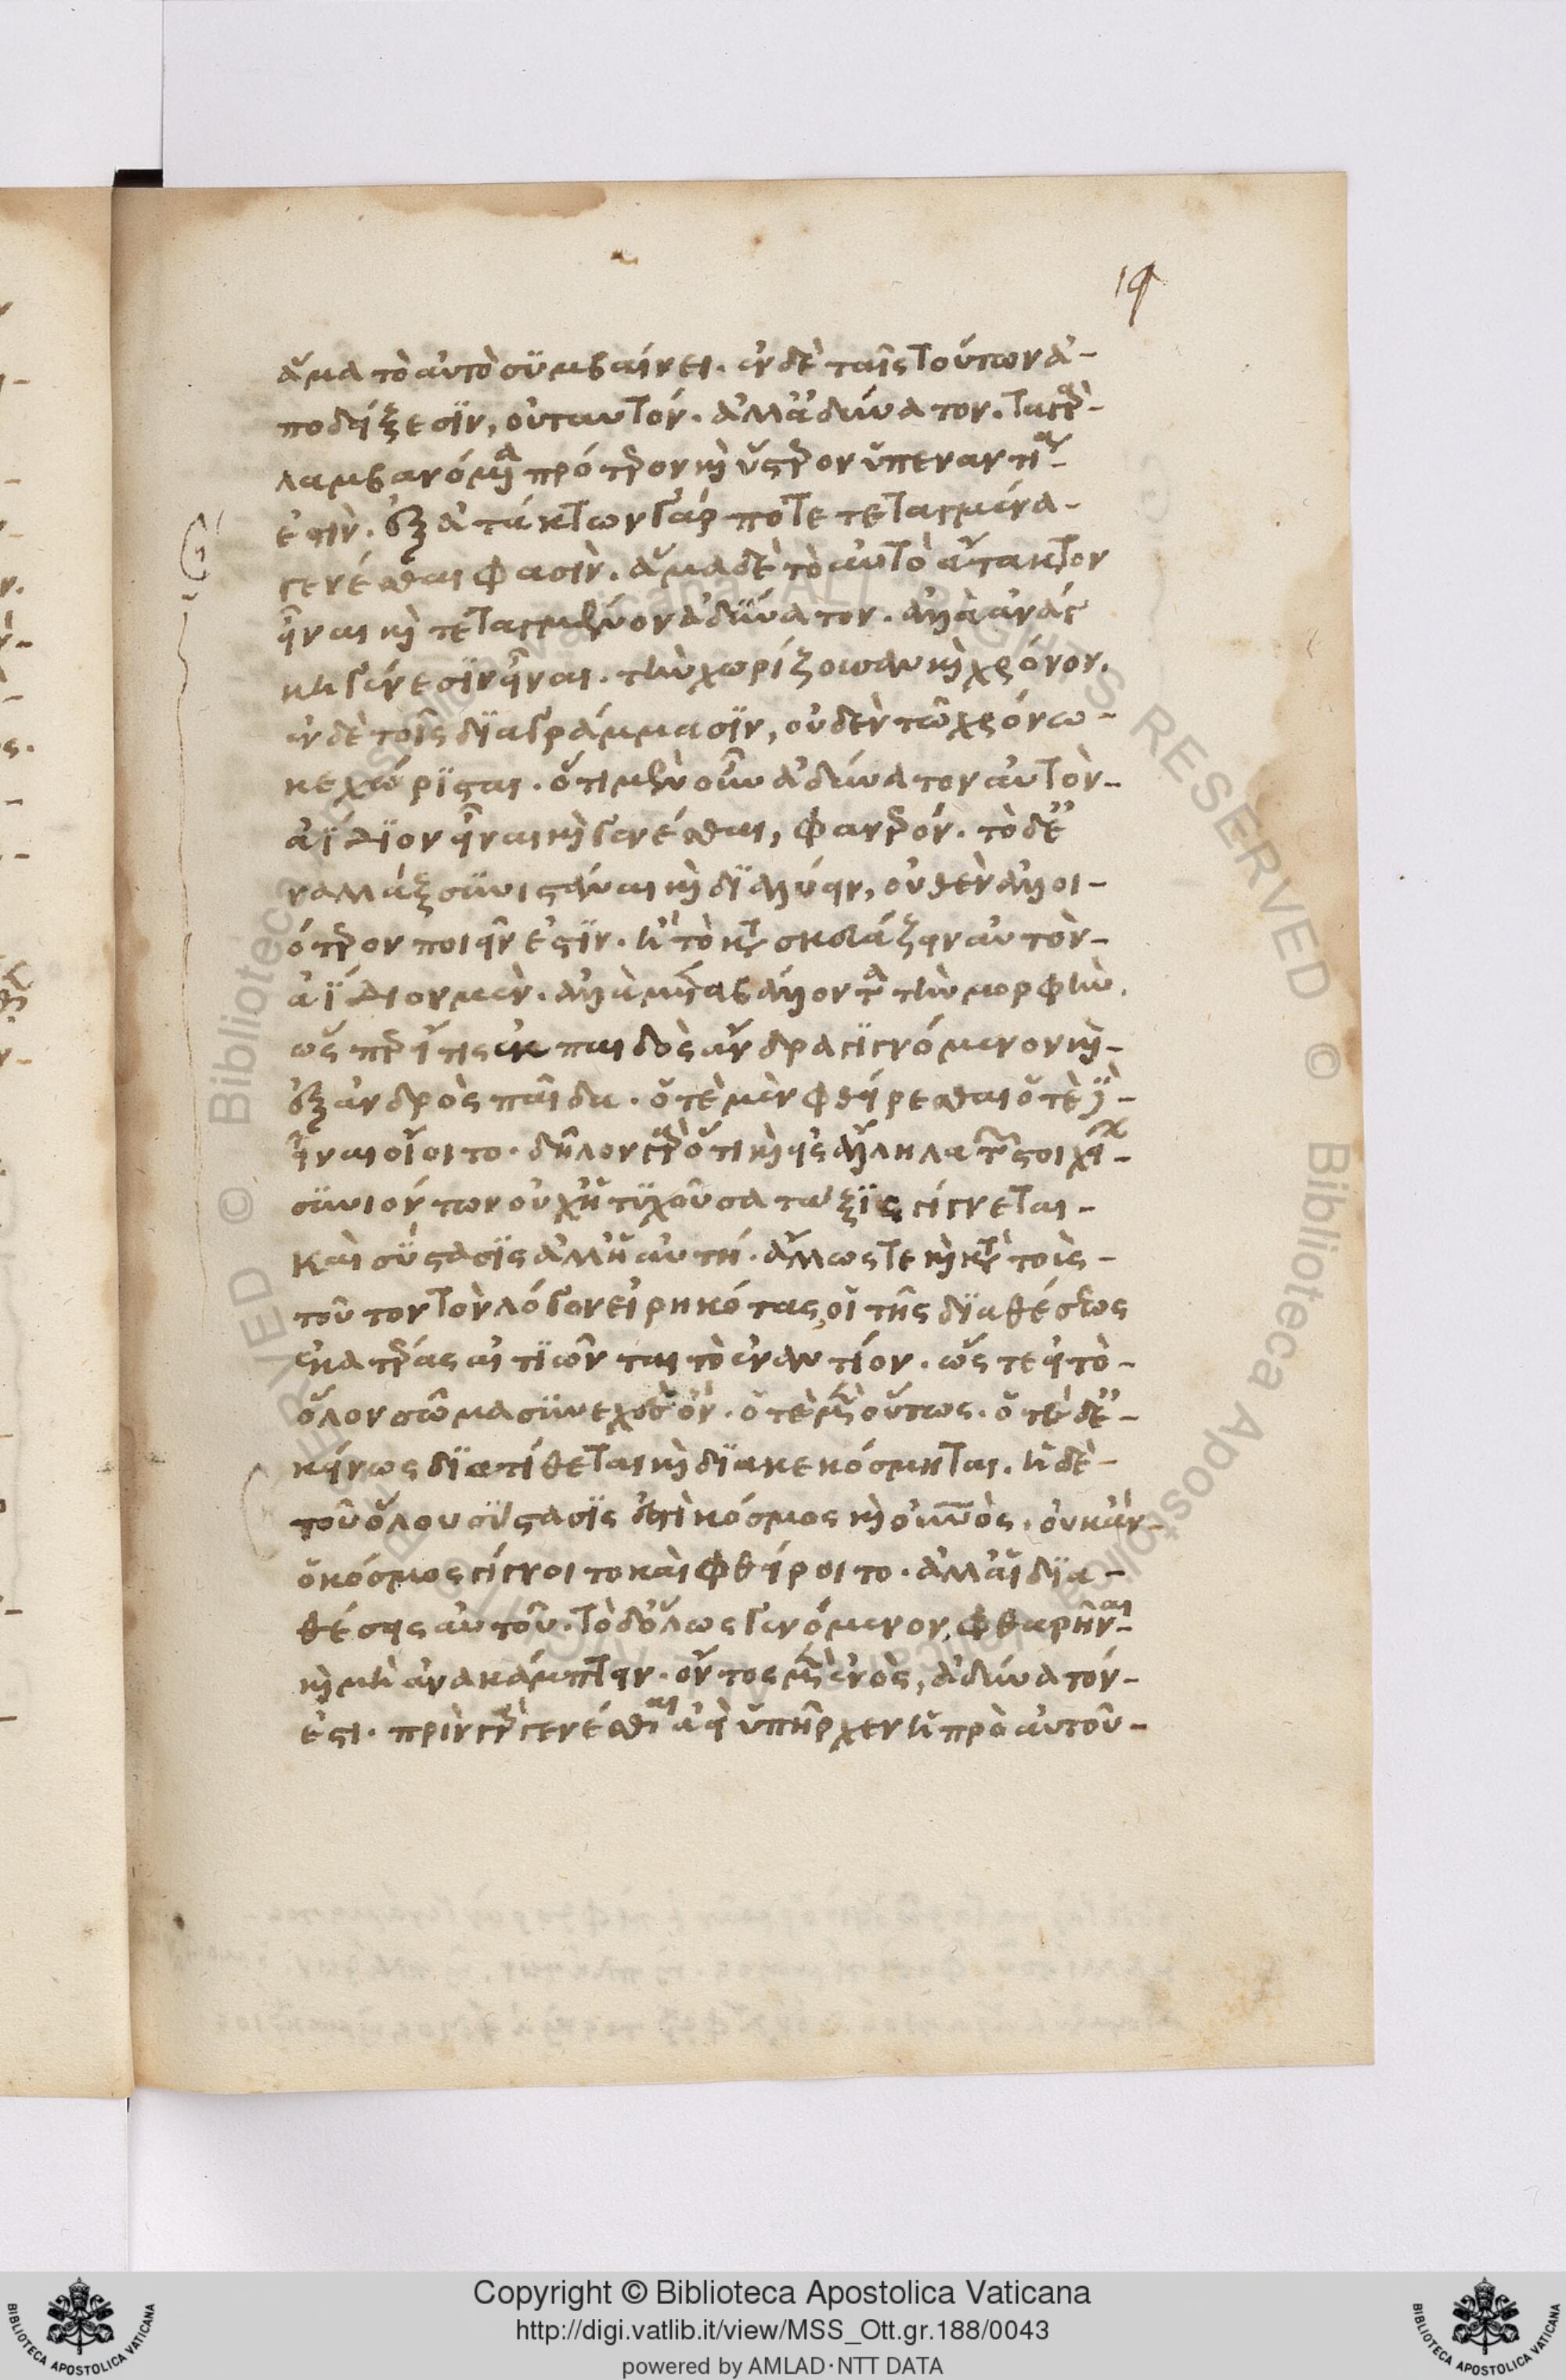 ἅμα τὸ αὐτὸ συμβαίνει. ἐν δὲ ταῖς τούτων ἀ-
ποδείξεσϊν, οὐ ταυτόν. ἀλλ' ἀδύνατον. τὰ γὰρ-
λαμβανόμενα πρότερον καὶ ὕστερον ὑπεναντία-
ἐστίν. ἐξ ἀτάκτων γάρ ποτε τεταγμένα-
γενέσθαι φασίν. ἅμα δὲ τὸ αὐτὸ ἄτακτον
εἶναι καὶ τεταγμένον ἀδύνατον. ἀλλὰ ἀνάγ
κη γένεσϊν εἶναι. τὴν χωρίζουσαν καὶ χρόνον.
ἐν δὲ τοῖς διαγράμμασϊν, οὐδὲν τῶ χρόνω-
κεχώρϊσται. ὅτι μὲν οὖν ἀδύνατον αὐτὸν-
ἀΐδϊον εἶναι καὶ γενέσθαι, φανερόν. τὸ δ' ἐ
ναλλὰξ συνιστάναι καὶ διαλύειν, οὐθὲν ἀλλοι-
ότερον ποιεῖν ἐστϊν. ἢ τὸ κατασκευάζειν αὐτὸν-
ἀΐδιον μὲν. ἀλλὰ μεταβάλλοντα τὴν μορφήν.
ὥσπερ εἴ τις ἐκ παιδὸς ἄνδρα γϊγνόμενον καὶ-
ἐξ ἀνδρὸς παῖδα. ὁτὲ μὲν φθείρεσθαι ὁτὲ δ'-
εἶναι οἴοιτο. δῆλον γὰρ ὅτι καὶ εἰς ἄλληλα τῶν στοιχείων-
συνιόντων οὐχ ἡ τυχοῦσα τάξϊς γίγνεται-
καὶ σύστασϊς ἀλλ' ἡ αὐτή. ἄλλως τε καὶ κατὰ τοὺς-
τοῦτον τὸν λόγον εἰρηκότας, οἳ τῆς διαθέσεως
ἑκατέρας αἰτϊῶνται τὸ ἐναντίον. ὥστε εἰ τὸ-
ὅλον σῶμα συνεχὲς ὂν. ὁτὲ μὲν οὕτως. ὁτὲ δ' ἐ-
κείνως διατίθεται καὶ διακεκόσμηται. ἡ δὲ-
τοῦ ὅλου σύστασϊς ἐστὶ κόσμος καὶ οὐνος. οὐκ ἂν-
ὁ κόσμος γίγνοιτο καὶ φθείροιτο. ἀλλ' αἱ δια-
θέσεις αὐτοῦ. τὸ δ' ὅλως γενόμενον, φθαρῆναι-
καὶ μὴ ἀνακάμπτειν. ὄντος μὲν ἑνὸς, ἀδύνατόν-
ἐστι. πρὶν γὰρ γενέσθαι ἀεὶ ὑπῆρχεν ἡ πρὸ αὐτοῦ-
19
Copyright © Biblioteca Apostolica Vaticana
http://digi.vatlib.it/view/MSS_Ott.gr.188/0043
powered by AMLAD·NTT DATA